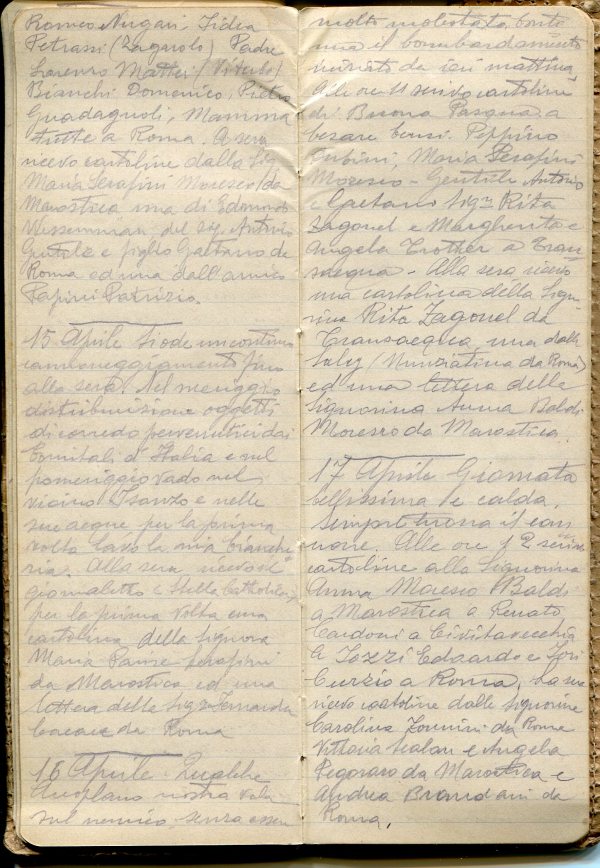 Romeo Nugari, Lidia
Petrassi (Zagarolo) Padre
Lorenzo Mattei (Viterbo)
Bianchi Domenico, Pietro
Guadagnoli, Mamma
tutte a Roma. A sera
ricevo cartoline dalla Sig.
Maria Serafini Moresco (da
Marostica una di Edmondo
del sig. Antonio
Gentile e figlio Gaetano da
Roma ed una dall'amico
Papini Patrizio.
15 Aprile Si ode un continuo
cannoneggiamento fino
alla sera. Nel meriggio
distribuzione oggetti
di corredo pervenutici dai
Comitati d'Italia e nel
pomeriggio vado nel
vicino Isonzo e nelle
sue acque per la prima
volta lavo la mia bianche-
ria. Alla sera ricevo il
giornaletto "Stella Cattolica"
per la prima volta una
cartolina della Signora
Maria Pavise Serafini
da Marostica ed una
lettera della Sig.na Fernanda
da Roma
16 Aprile Qualche
Areoplano nostro vola
sul nemico senza essere
molto molestato. Conti
nua il bombardamento
iniziato da ieri mattina.
Alle ore 11 scrivo cartoline
di Buona Pasqua a
Cesare Censi. Peppino
Rubini, Maria Serafini
Moresco - Gentile Antonio
e Gaetano Sig.na Rita
Zagonel e Margherita e
Angela Trotter a Tran-
sacqua - Alla sera ricevo
una cartolina della Signo
rina Rita Zagonel da
Transacqua, una dalla
(Nunziatina da Roma)
ed una lettera della
Signorina Anna Baldi
Moresco da Marostica.
17 Aprile Giornata
bellissima e calda.
Sempre tuona il can
none. Alle ore 12 scrivo
cartoline alla Signorina
Anna Moresco Baldi
a Marostica a Renato
Cardoni a Civitavecchia
a Tozzi Edoardo e Tori
Curzio a Roma,
ricevo cartoline dalle Signorine
Carolina Tonnini da Roma
Vittoria Scalan e Angela
Pegoraro da Marostica e
Andrea Brandani da
Roma.